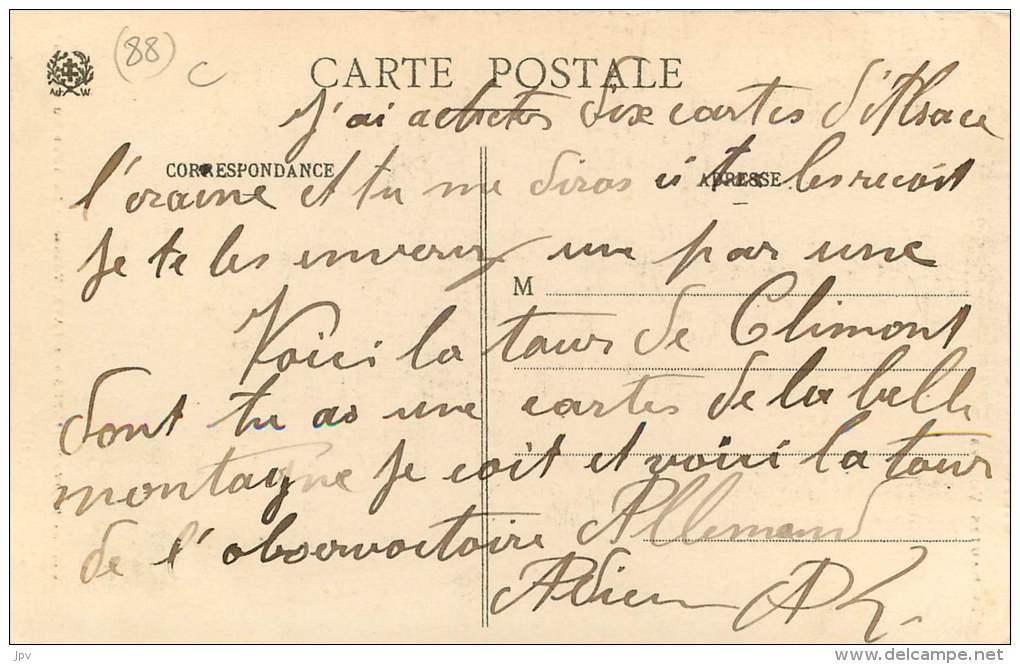 (88)
C
Ad W
CARTE POSTALE
J'ai achetés dix cartes d'Alsace
CORRESPONDANCE
ADRESSE
l'oraine et tu me diras si tu les recoit
Je te les enverrez une par une
M
Voici la tour de Climont
dont tu as une cartes de la belle
montagne je coit et voici la tour
de l'observoitoire Allemand
Adieu
jpv
www.delcampe.net